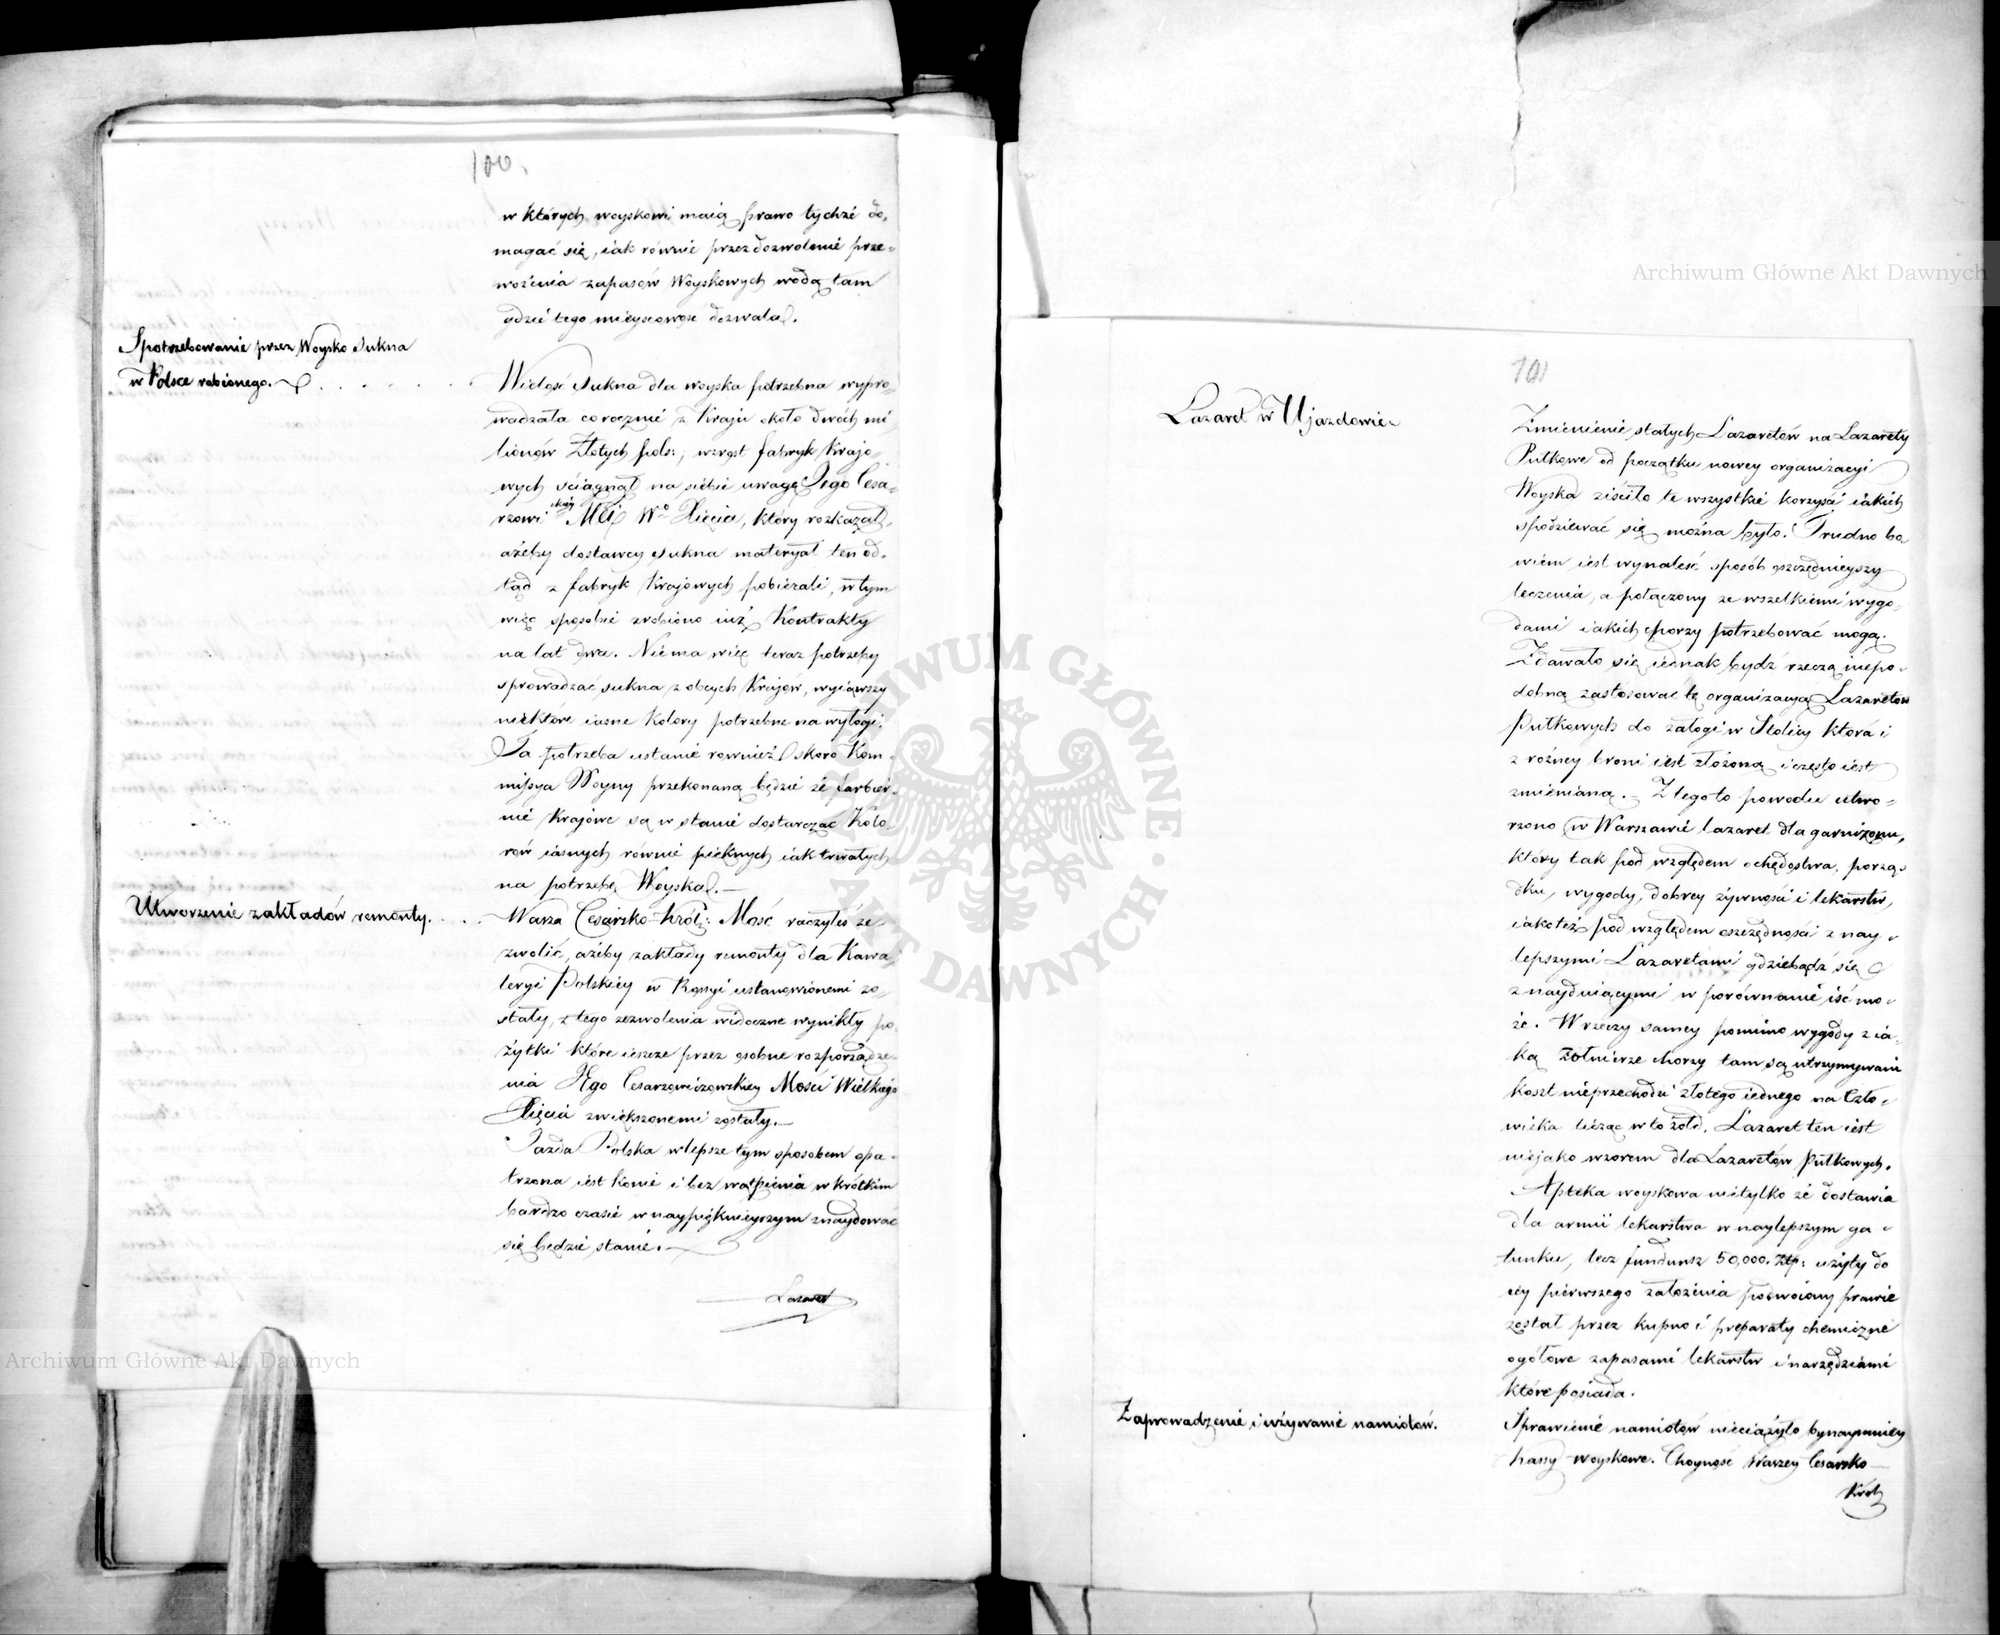 100.
w których woyskowi maią prawo tychże do-
magać się, iak równie przez dozwolenie prze-
wożenia zapasów Woyskowych wodą tam
gdzie tego mieyscowość dozwala.
Spotrzebowanie przez Woysko Sukna
w Polsce robionego.
Wielość Sukna dla woyska potrzebna wypro-
wadzała corocznie z Kraju około dwóch mi-
lionów Złotych pols:, wzrost fabryk Krajo-
wych ściągnął na siebie uwagę Jego Cesa-
rzowi Mci Wo Xięcia, który rozkazał,
ażeby dostawcy Sukna materyał ten od-
tąd z fabryk Krajowych pobierali, w tym
więc sposobie zrobiono iuż Kontrakty
na lat dwa. Niema więc teraz potrzeby
sprowadzać sukna z obcych Krajów, wyiąwszy
niektóre iasne Kolory potrzebne na wyłogi.
Ta potrzeba ustanie również skoro Kom-
missya Woyny przekonaną będzie że farbier-
nie Krajowe są w stanie dostarczać Kolo-
rów iasnych równie pięknych iak trwałych
na potrzebę Woyska.
Utworzenie zakładów remonty.
Wasza Cesarsko-Król: Mość raczyłeś ze-
zwolić, ażeby zakłady remonty dla Kawa-
leryi Polskiey w Rossyi ustanowionemi zo-
stały, z tego zezwolenia widoczne wynikły po-
żytki które ieszcze przez osobne rozporządze-
nia JEgo Cesarzowiczowskiey Mości Wielkiego
Xięcia zwiększonemi zostały.
Jazda Polska w lepsze tym sposobem opa-
trzona iest konie i bez wątpienia w krótkim
bardzo czasie w naypięknieyszym znaydować
się będzie stanie.
Lazaret
101
Lazaret w Ujazdowie
Zmienienie stałych Lazaretów na Lazarety
Pułkowe od początku nowey organizacyi
Woyska ziściło te wszystkie korzyści iakich
spodziewać się można było. Trudno bo-
wiem iest wynaleść sposób oszczędnieyszy
leczenia, a połączony ze wszelkiemi wygo-
dami iakich chorzy potrzebować mogą.
Zdawało się iednak bydź rzeczą niepo-
dobną zastosować tę organizacyą Lazaretów
Pułkowych do załogi w Stolicy która i
z różney broni iest złożoną i często iest
zmienianą. Z tego to powodu utwo-
rzono w Warszawie lazaret dla garnizonu,
który tak pod względem ochędóstwa, porzą-
dku, wygody, dobrey żywności i lekarstw,
iako też pod względem oszczędności z nay-
lepszymi Lazaretami gdziebądź się
znayduiącymi w porównanie iść mo-
że. W rzeczy samey pomimo wygody z ia-
ką Żołnierze chorzy tam są utrzymywani
koszt nieprzechodzi złotego iednego na Czło-
wieka licząc w to żołd. Lazaret ten iest
niejako wzorem dla Lazaretów Pułkowych.
Apteka woyskowa nietylko że dostawia
dla armii lekarstwa w naylepszym ga-
tunku, lecz fundusz 50,000. Złp: użyty do
iey pierwszego założenia podwoiony prawie
został przez kupno i preparaty chemiczne
ogółowe zapasami lekarstw i narzędziami
które posiada.
Zaprowadzenie i używanie namiotów.
Sprawienie namiotów nieciążyło bynaymniey
kassy woyskowe. Choyność Waszey Cesarsko
Król
Archiwum Główne Akt Dawnych
Archiwum Główne Akt Dawnych
ARCHIWUM GŁÓWNE AKT DAWNYCH